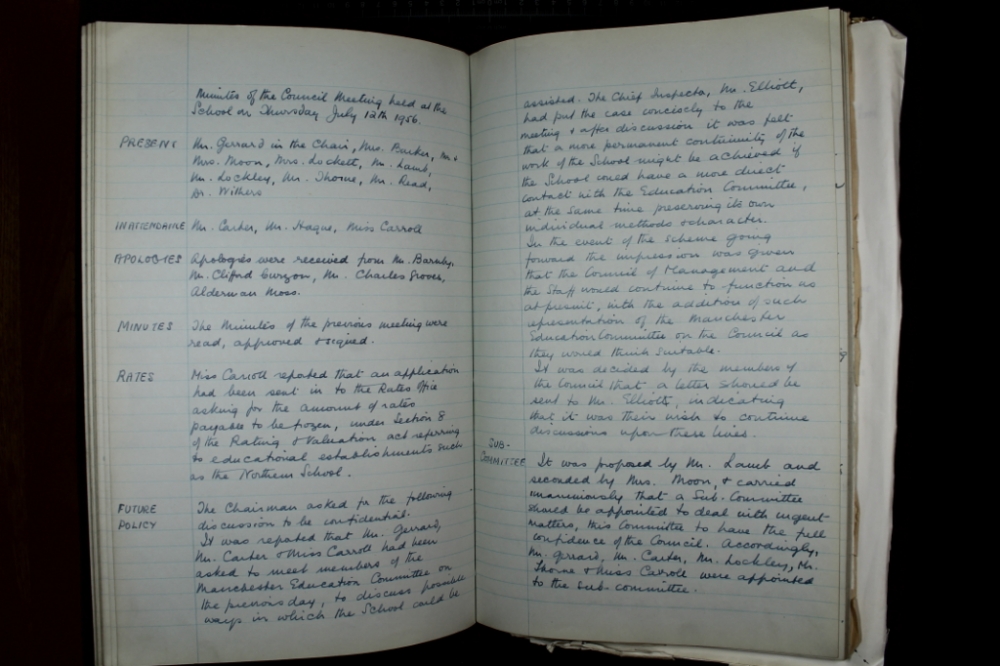 Minutes of the Council Meeting held at the
School on Thursday July 12th 1956.
PRESENT Mr. Gerrard in the Chair, Mrs. Barker, Mr &
Mrs. Moon, Mrs. Lockett, Mr. Lamb,
Mr. Lockley, Mr. Thorne, Mr. Read,
Dr. Withers
IN ATTENDANCE Mr. Carter, Mr. Hague, Miss Carroll
APOLOGIES Apologies were received from Mr. Barnby,
Mr. Clifford Curzon, Mr. Charles Groves,
Alderman Moss.
MINUTES The Minutes of the previous meeting were
read, approved & signed.
RATES Miss Carroll reported that an application
had been sent in to the Rates Office
asking for the amount of rates
payable to be frozen, under Section 8
of the Rating & Valuation act referring
to educational establishments such
as the Northern School.
FUTURE The Chairman asked for the following
POLICY discussion to be confidential.
It was reported that Mr. Gerrard,
Mr. Carter & Miss Carroll had been
asked to meet members of the
Manchester Education Committee on
the previous day, to discuss possible
ways in which the School could be
assisted. The Chief Inspector, Mr. Elliott,
had put the case concisely to the
meeting & after discussion it was felt
that a more permanent continuity of the
work of the School might be achieved if
the School could have a more direct
contact with the Education Committee,
at the same time preserving its own
individual methods & character.
In the event of the scheme going
forward the impression was given
that the Council of Management and
the Staff would continue to function as
at present, with the addition of such
representation of the Manchester
Education Committee on the Council as
they would think suitable.
It was decided by the members of
the Council that a letter should be
sent to Mr. Elliott, indicating
that it was their wish to continue
discussions upon these lines.
SUB-
COMMITTEE It was proposed by Mr. Lamb and
seconded by Mrs. Moon, & carried
unanimously that a Sub-Committee
should be appointed to deal with urgent
matters, this Committee to have the full
confidence of the Council. Accordingly,
Mr. Gerrard, Mr. Carter, Mr. Lockley, Mr.
Thorne & Miss Carroll were appointed
to the sub-committee.